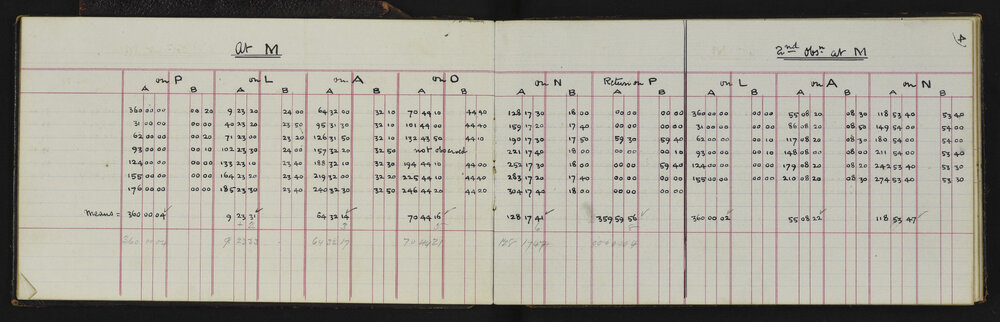 4
At M 2nd Obsn. at M
on P on L on A on O on N Return on P on L on A on N
A B A B A B A B A B A B A B A B A B
360 00 00 00 20 9 23 20 24 00 64 32 00 32 10 70 44 10 44 40 128 17 30 18 00 00 00 00 00 360 00 00 00 00 55 08 20 08 30 118 53 40 53 40
31 00 00 00 00 40 33 20 23 50 95 31 30 32 10 101 44 00 44 40 159 17 20 17 40 00 00 00 00 31 00 00 00 00 86 08 20 08 50 149 54 00 54 00
62 00 00 00 20 71 23 00 23 20 126 31 50 32 10 132 43 50 44 10 190 17 30 17 50 59 30 59 40 62 00 00 00 00 117 08 20 08 40 180 54 00 54 00
93 00 00 00 10 102 23 30 24 00 157 32 20 32 50 not observed 221 17 40 18 00 00 00 00 10 93 00 00 00 10 148 08 00 08 00 211 54 00 53 40
124 00 00 00 00 133 23 10 23 40 188 32 10 32 30 194 44 10 44 00 252 17 30 18 00 00 00 59 40 124 00 00 00 00 179 08 20 08 20 242 53 40 53 30
155 00 00 00 00 164 23 20 23 40 219 32 00 32 20 225 44 10 44 00 283 17 20 17 40 00 00 00 00 155 00 00 00 00 210 08 20 08 30 274 53 40 53 30
176 00 00 00 00 185 23 30 23 40 240 32 30 32 50 246 44 20 44 20 304 17 40 18 00 00 00 00 00
Means = 360 00 04 9 23 31 64 32 14 70 44 16 128 17 41 359 59 56 360 00 02 55 08 22 118 53 47
9 23 33 64 32 17 70 44 21